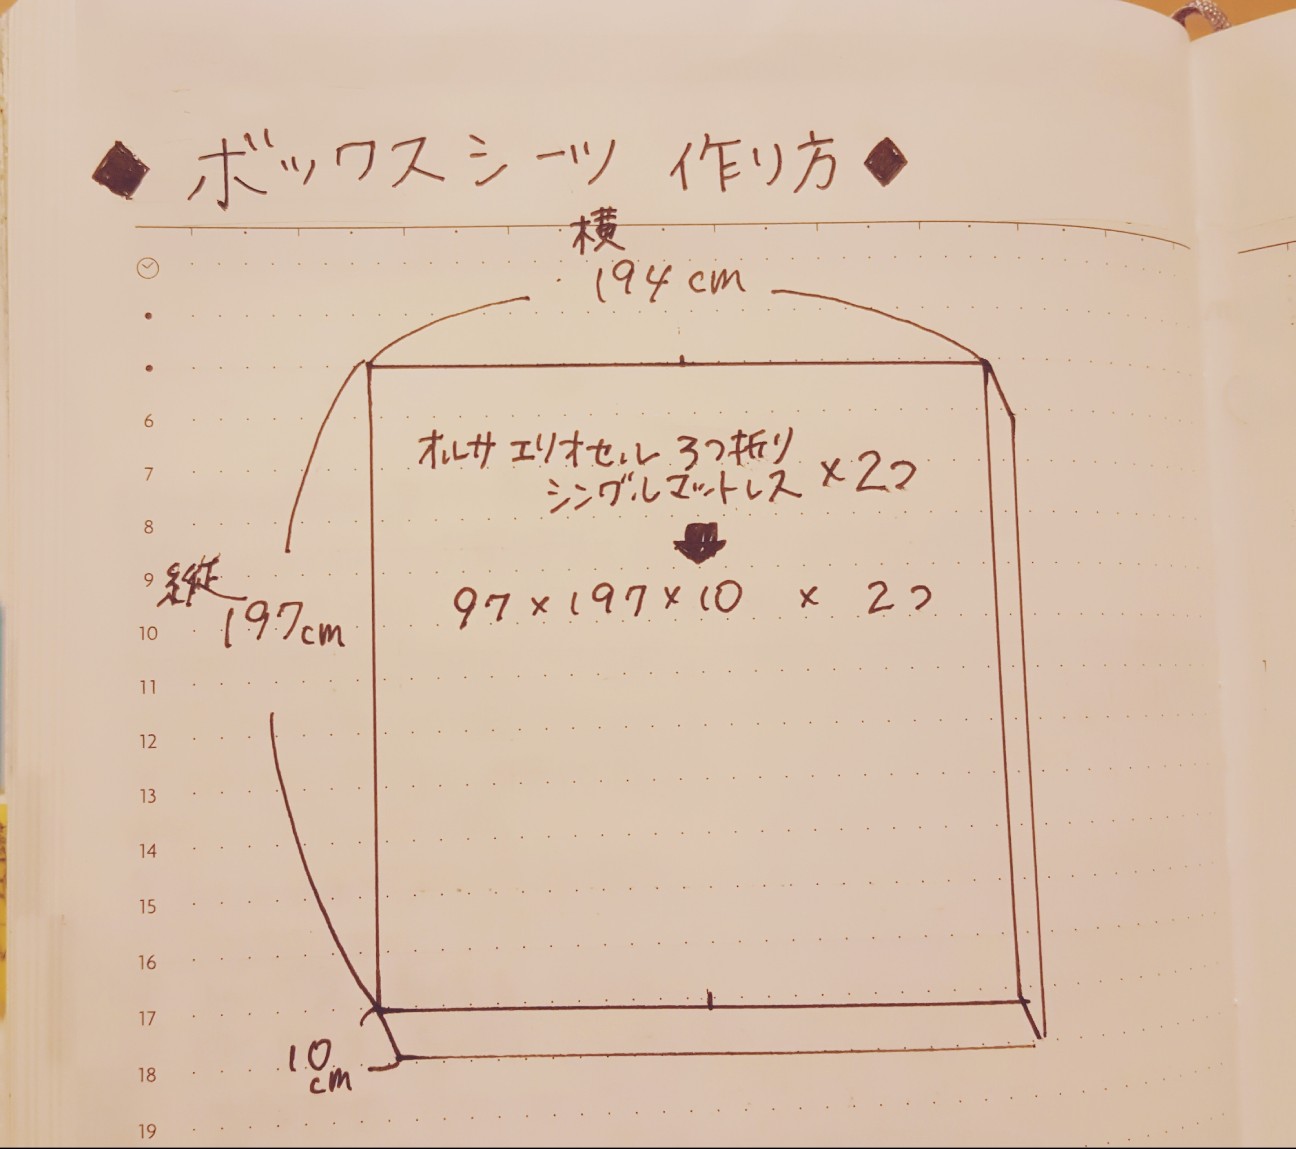 ◆ ボックスシーツ 作り方 ◆
横
194 cm
6
オルサ エリオセル 3つ折り
シングルマットレス ×2つ
7
8
9
縦
197cm
97×197×10 × 2つ
10
11
12
13
14
15
16
17
10
cm
18
19